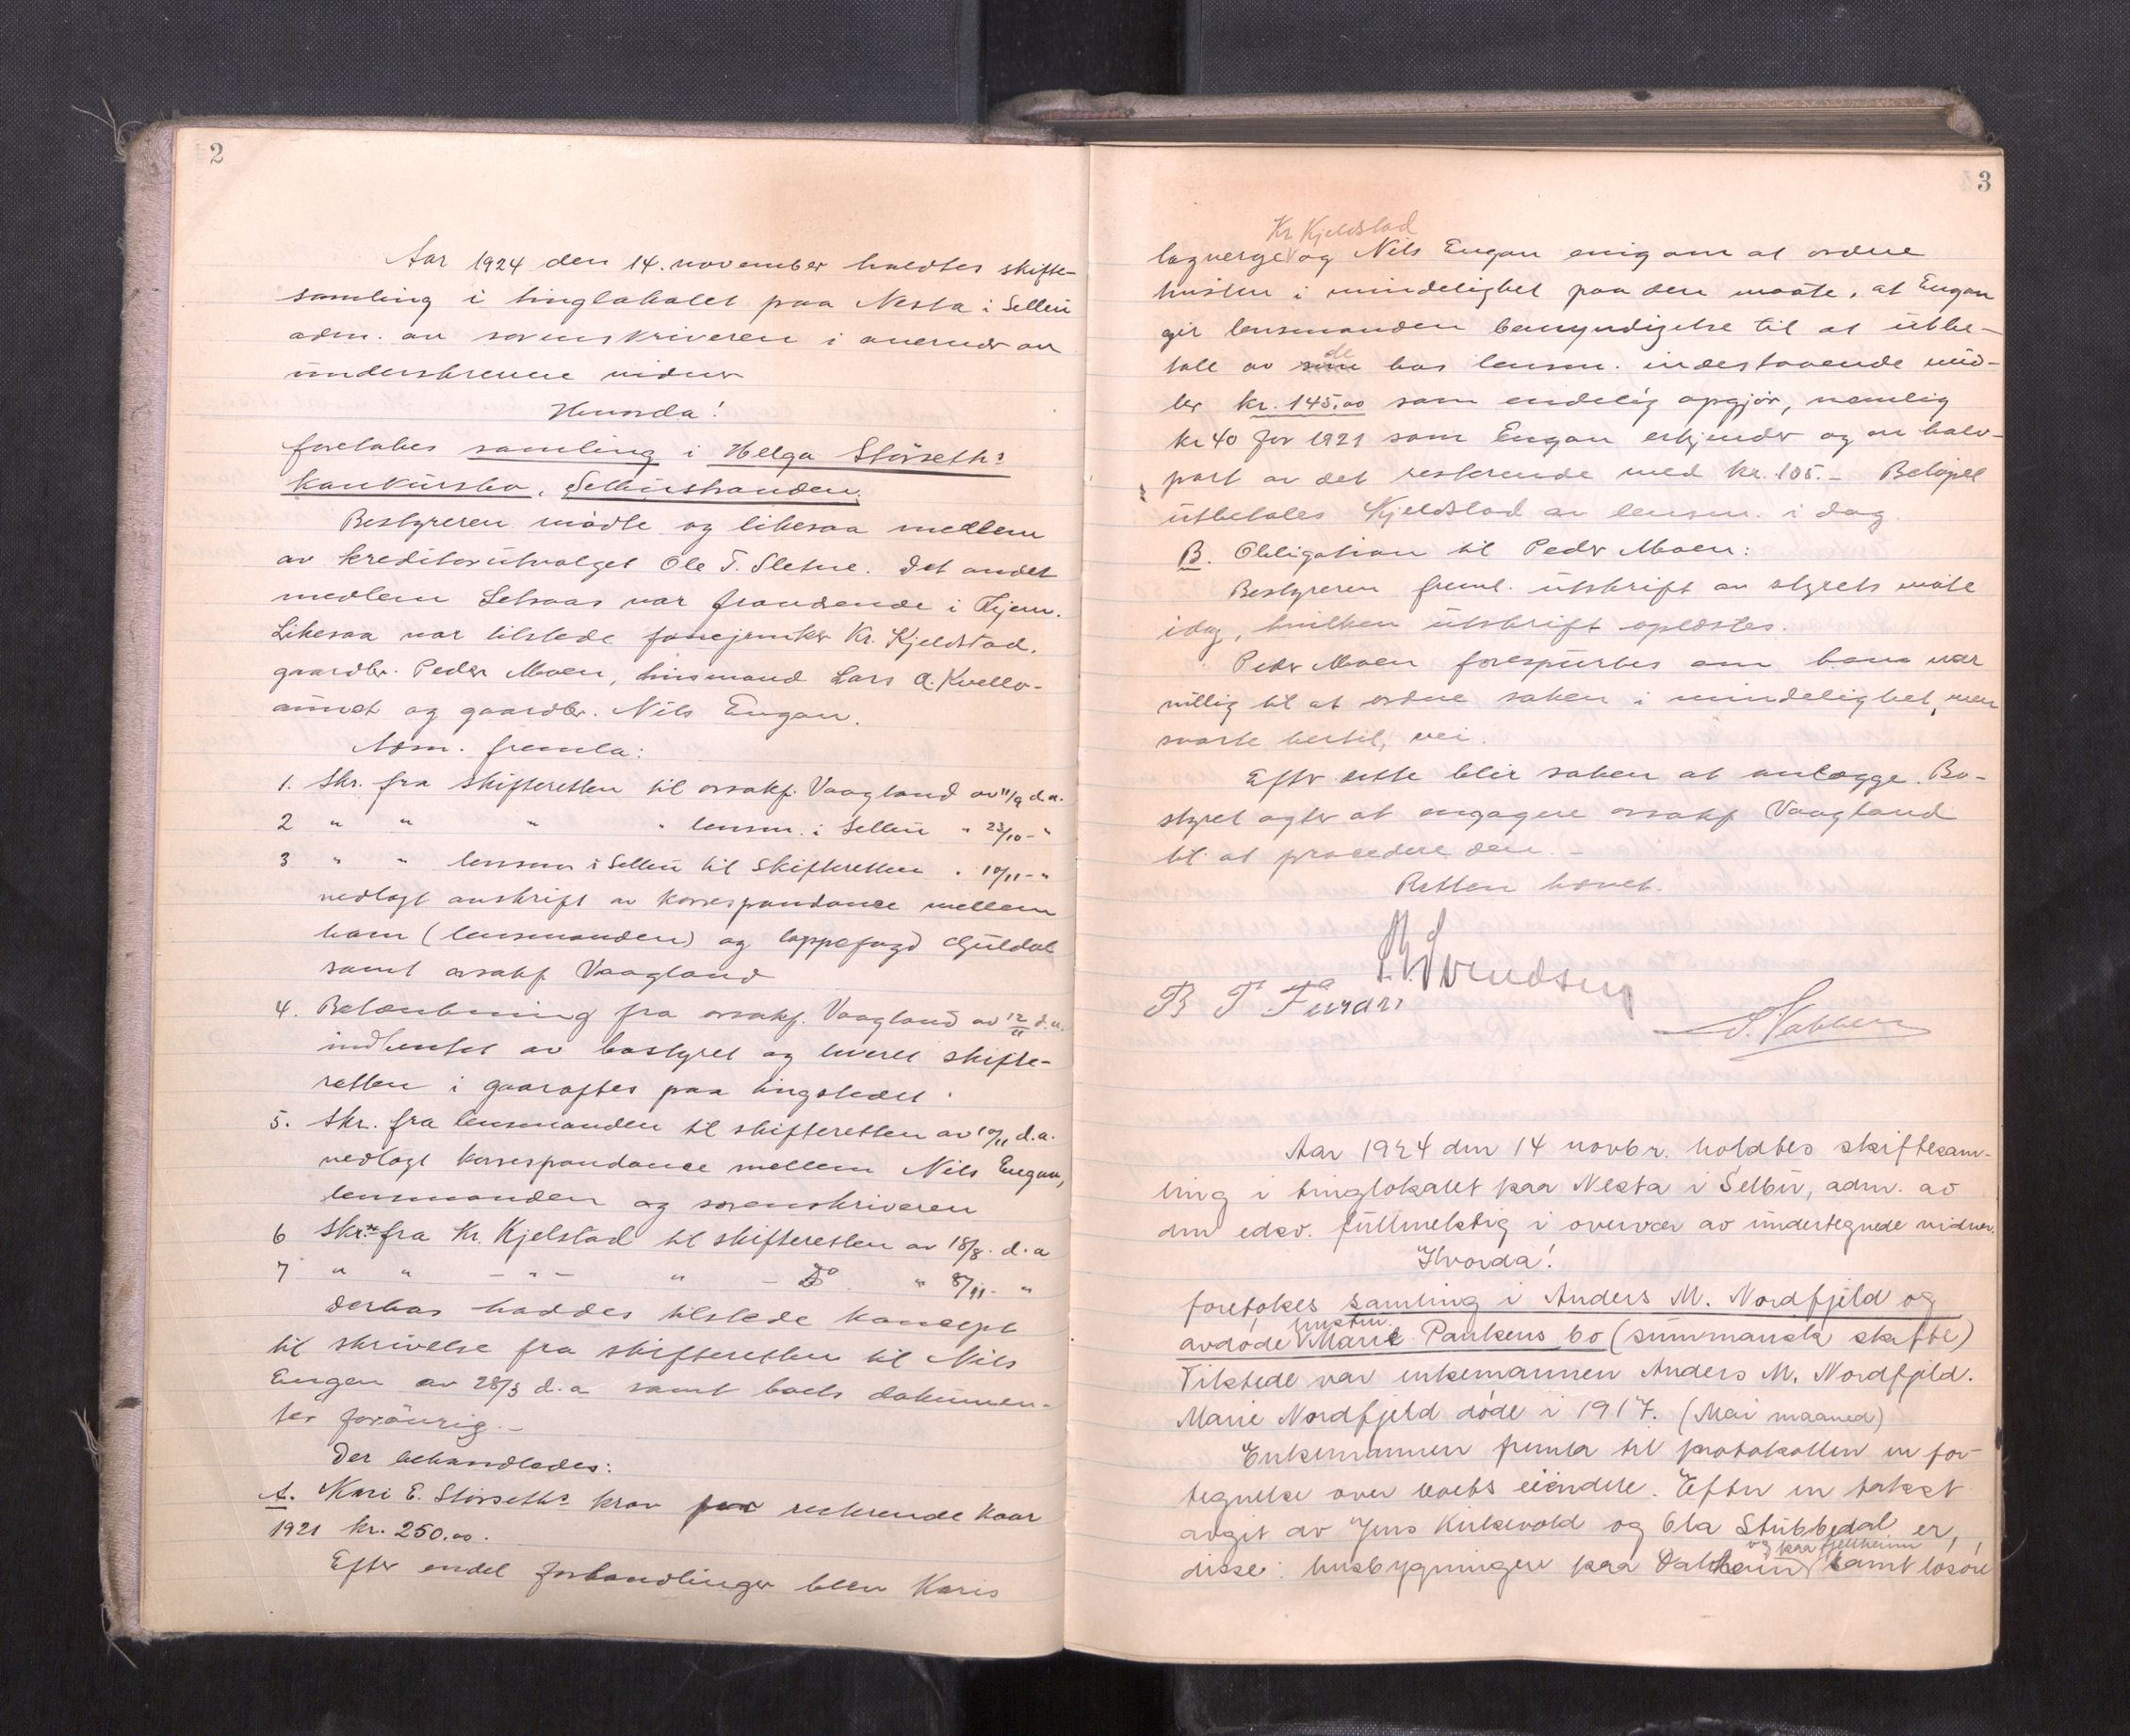 2
Aar 1924 den 14. november holdtes skifte-
samling i tinglokalet paa Nesta i Selbu
adm. av sorenskriveren i overvær av
underskrevne vidner
Hvorda!
foretokes samling i Helga Störseths
konkursbo, Selbustranden.
Bestyreren mödte og likesaa medlem
av kreditorutvalget Ole T. Sletne. Det andet
medlem Setsaas var fraværende i Tijem.
Likesaa var tilstede fanejunker Kr. Kjeldstad,
gaardbr. Peder Moen, husmand Lars A. Kvello-
aunet og gaardbr. Nils Engan.
Adm. fremla:
1. Skr. fra skifteretten til o.r.sakf. Vaagland av 11/9 d.a.
2 " " " " lensm. i Selbu " 23/10 - "
3 " " lensm. i Selbu til skifteretten " 10/11 - "
vedlagt avskrift av korrespondance mellem
ham (lensmanden) og lappefogd Guldal
samt o.r.sakf. Vaagland
4. Betænkning fra o.r.sakf. Vaagland av 12/11 d.a.
indhentet av bostyret og levert skifte-
retten i gaaraftes paa tingstedet.
5. Skr. fra lensmanden til skifteretten av 10/11 d.a.
vedlagt korrespondance mellem Nils Engan,
lensmanden og sorenskriveren
6 Skr. fra Kr. Kjelstad til skifteretten av 18/8. d.a
7 " " - " - " - Do " 8/11 - "
Derhos haddes tilstede koncept
til skrivelse fra skifteretten til Nils
Engan av 28/3 d.a samt boets dokumen-
ter forövrig. -
Der behandledes:
A. Kari E. Störseths krav for resterende kaar
1921 kr. 250.00.
Efter endel forhandlinger blev Karis
3
Kr Kjeldstad
lagverge og Nils Engan enig om at ordne
tvisten i mindelighet paa den maate, at Engan
gir lensmanden bemyndigelse til at utbe-
tale av de hos lensm. indestaaende mid-
ler kr. 145.00 som endelig opgjör, nemlig
kr 40 for 1921 som Engan erkjender og en halv-
part av det resterende med kr. 105. - Belöpet
utbetales Kjeldstad av lensm. i dag.
B. Obligation til Peder Moen:
Bestyreren freml. utskrift av styrets möte
idag, hvilken utskrift oplæstes.
Peder Moen forespurtes om han var
villig til at ordne saken i mindelighet, men
svarte hertil, nei.
Efter dette blir saken at anlægge. Bo-
styret agter at engagere o.r.sakf Vaagland
til at procedere den. -
Retten hævet.
Svendsen
B T Furan
Aar 1924 den 14 novbr. holdtes skiftesam-
ling i tinglokalet paa Nesta i Selbu, adm. av
den edsv. fullmektig i overvær av undertegnede vidner.
Hvorda!
foretokes samling i Anders M. Nordfjeld og
hustru
avdöde Marie Paulsens bo (summarisk skifte)
Tilstede var enkemannen Anders M. Nordfjeld.
Marie Nordfjeld döde i 1917. (Mai maaned)
Enkemannen fremla til protokollen en for-
tegnelse over boets eiendele. Efter en takst
avgit av Jens Kirkevold og Ola Stubbedal er,
og paa fjellheim
disse: husbygningene paa Dalheim samt lösöre